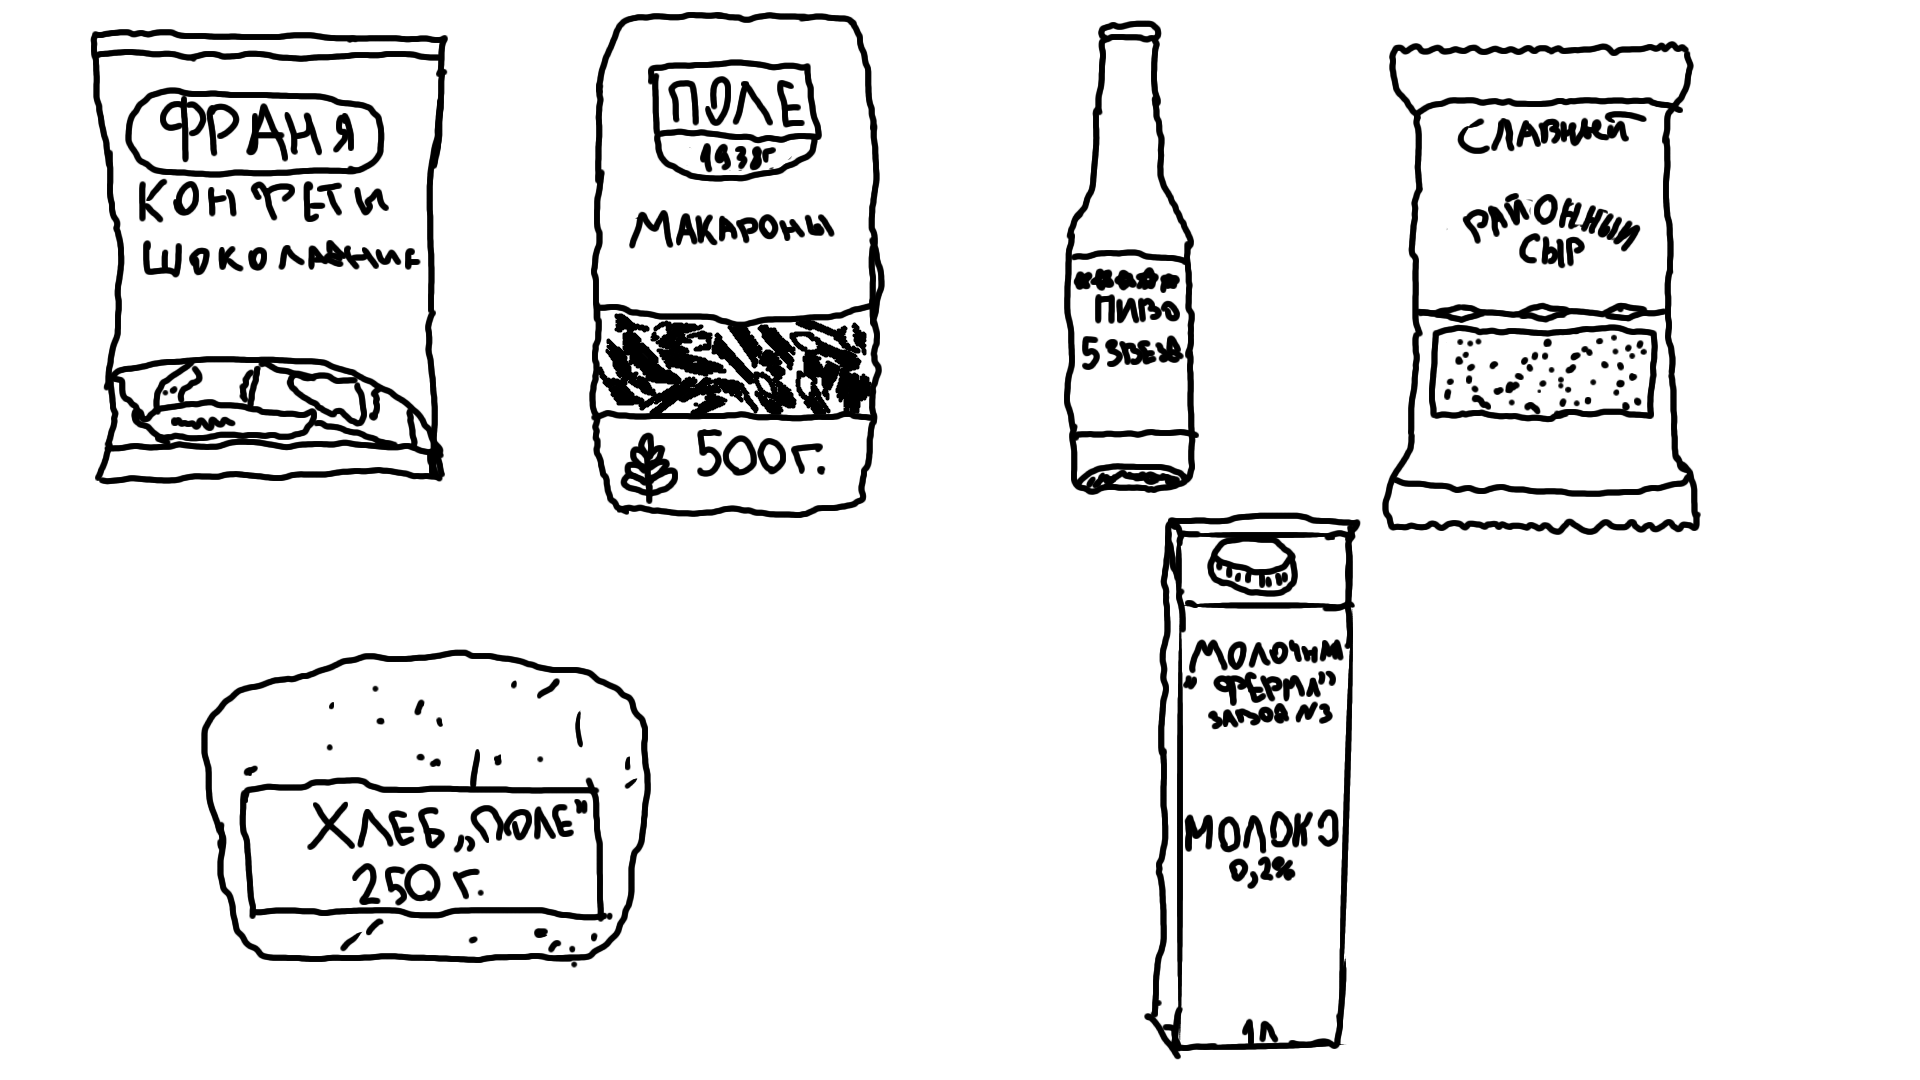 ФРАНЯ
КОНФЕТИ
ШОКОЛАДНИЕ
ПОЛЕ
1938г
МАКАРОНЫ
500г.
ПИВО
5 ЗВЕЗД
СЛАВНЫЙ
РАЙОННЫЙ
СЫР
ХЛЕБ „ПОЛЕ”
250 г.
МОЛОЧНАЯ
"ФЕРМА"
ЗАВОД №3
МОЛОКО
0,2%
1Л